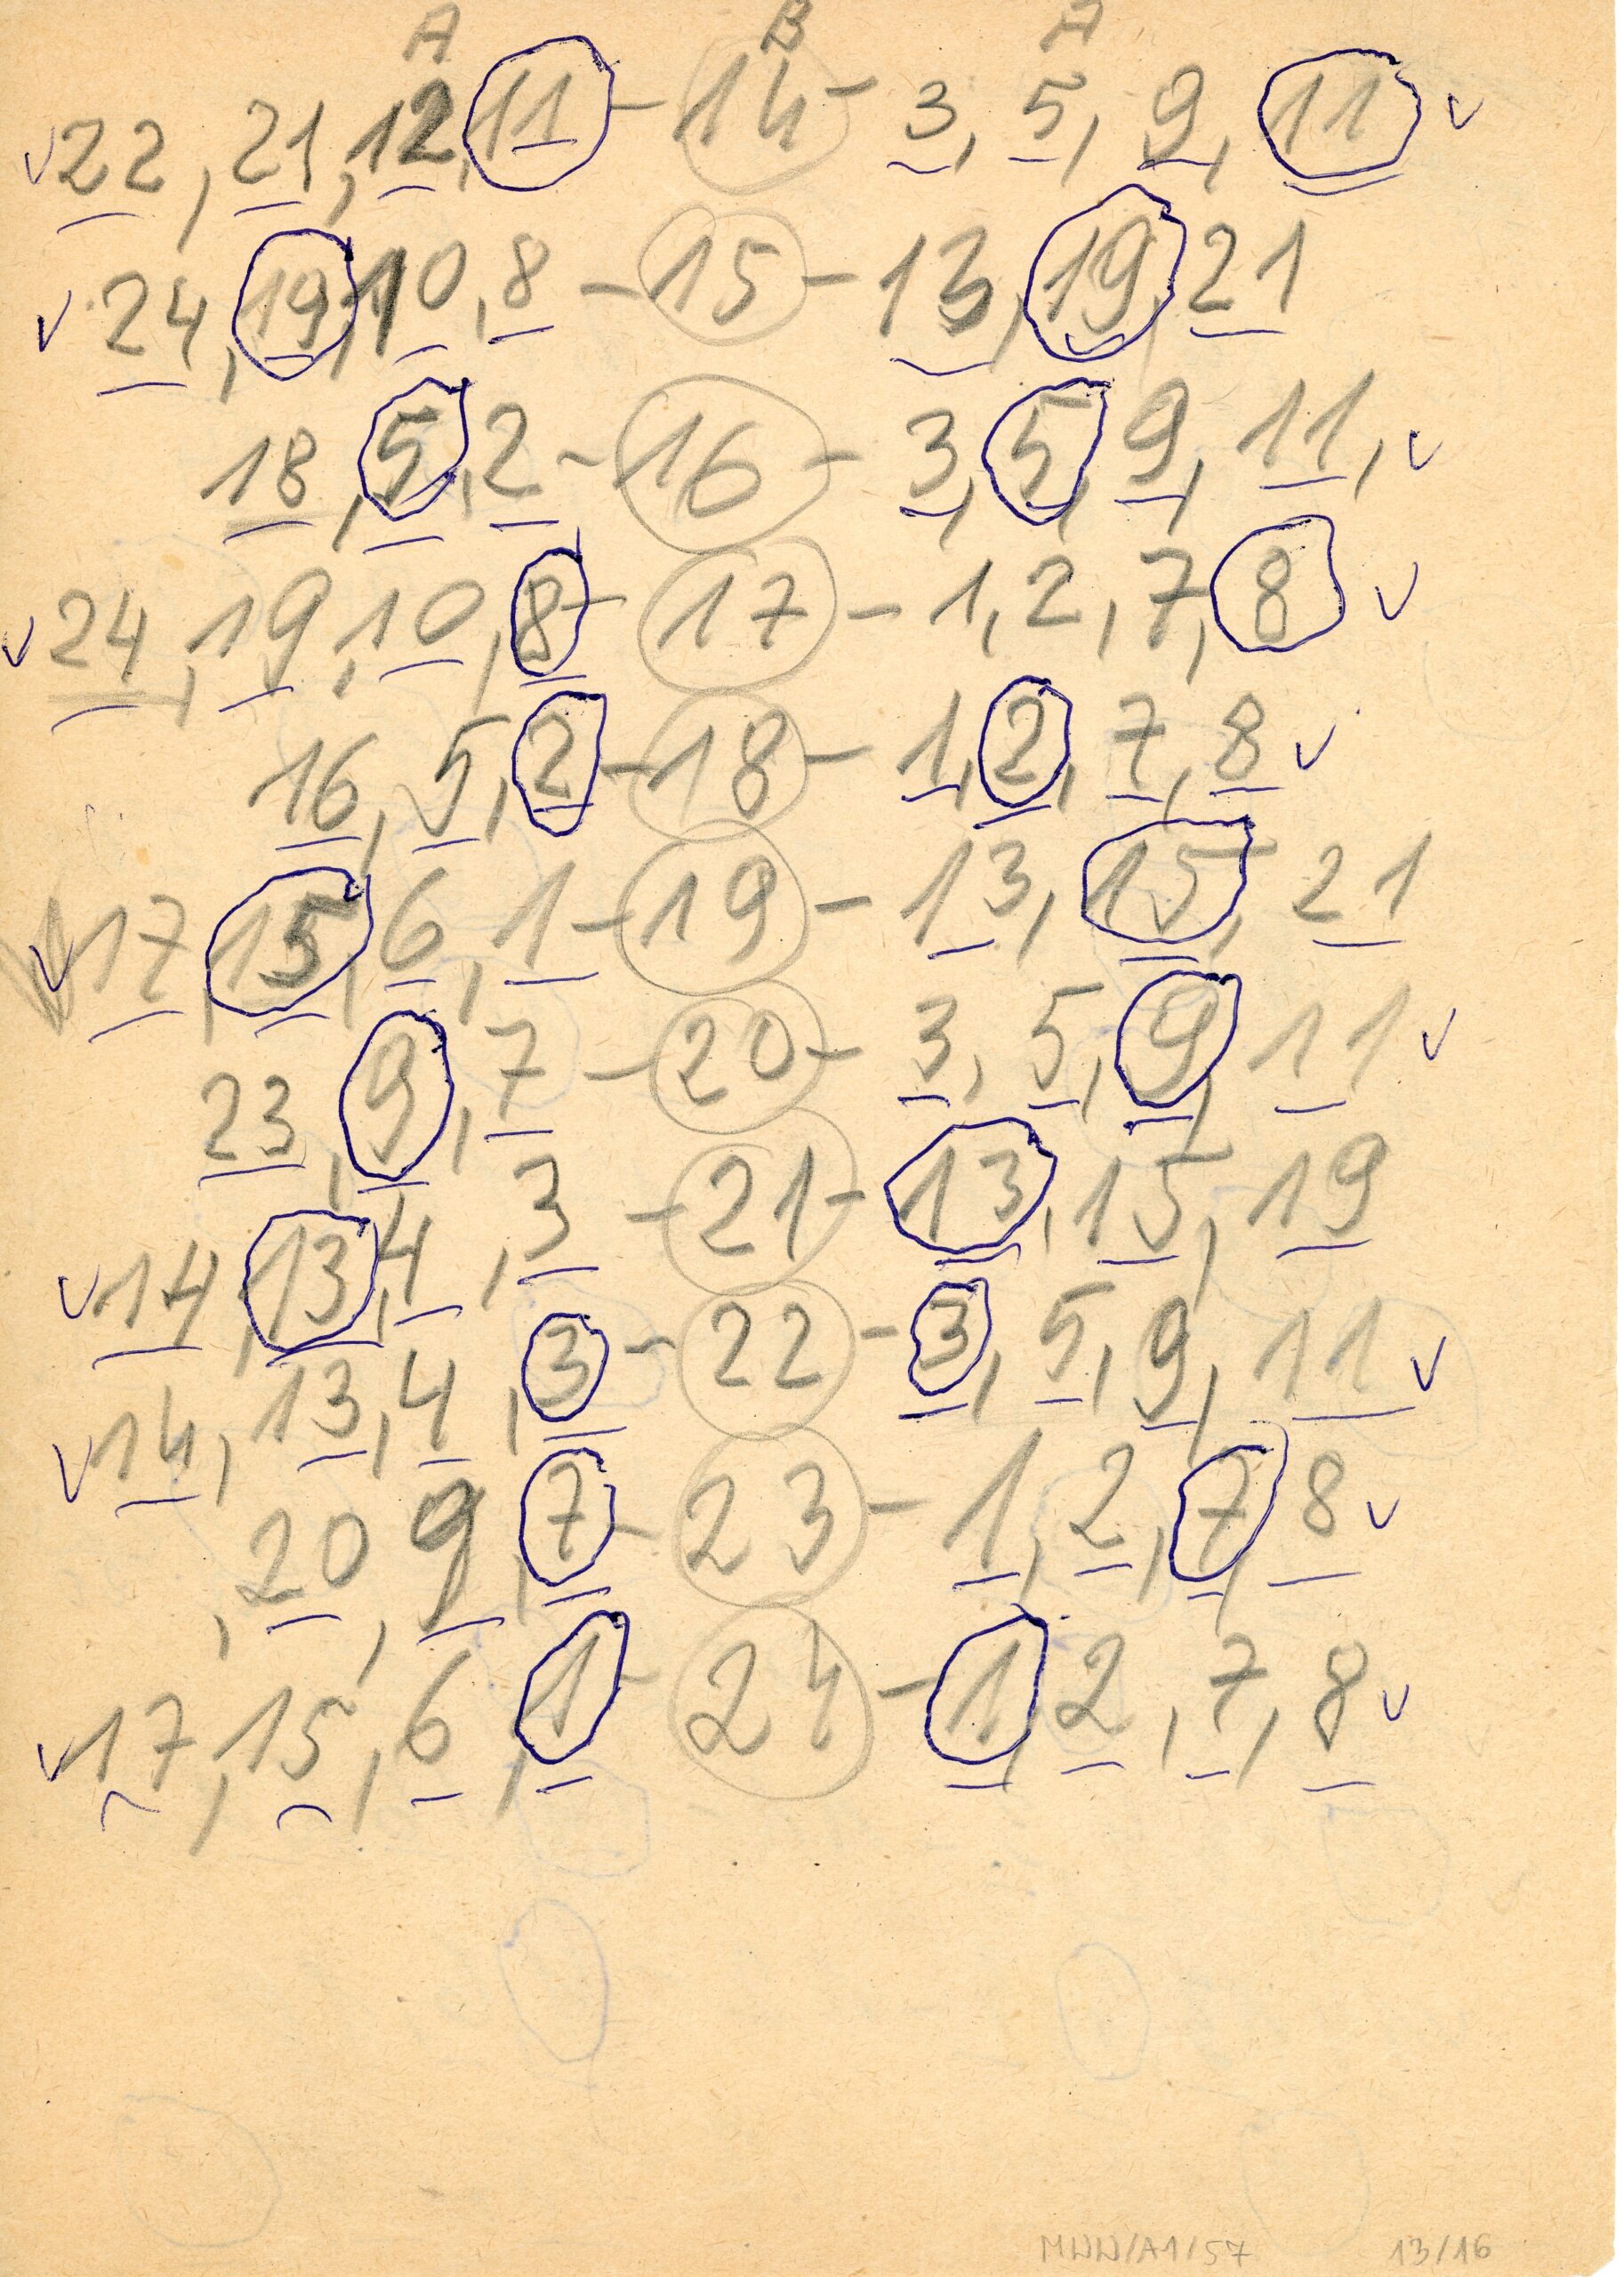 A B A
22, 21, 12, 11 - 14 - 3, 5, 9, 11
24, 19, 10, 8 - 15 - 13, 19, 21
18, 5, 2 - 16 - 3, 5, 9, 11,
24, 19, 10, 8 - 17 - 1, 2, 7, 8
16, 5, 2 - 18 - 1, 2, 7, 8
17, 15, 6, 1 - 19 - 13, 15, 21
23, 9, 7 - 20 - 3, 5, 9, 11
14, 13, 4, 3 - 21 - 13, 15, 19
14, 13, 4, 3 - 22 - 3, 5, 9, 11
, 20, 9, 7 - 23 - 1, 2, 7, 8
17, 15, 6, 1 - 24 - 1, 2, 7, 8
MWW/A1/57 13/16